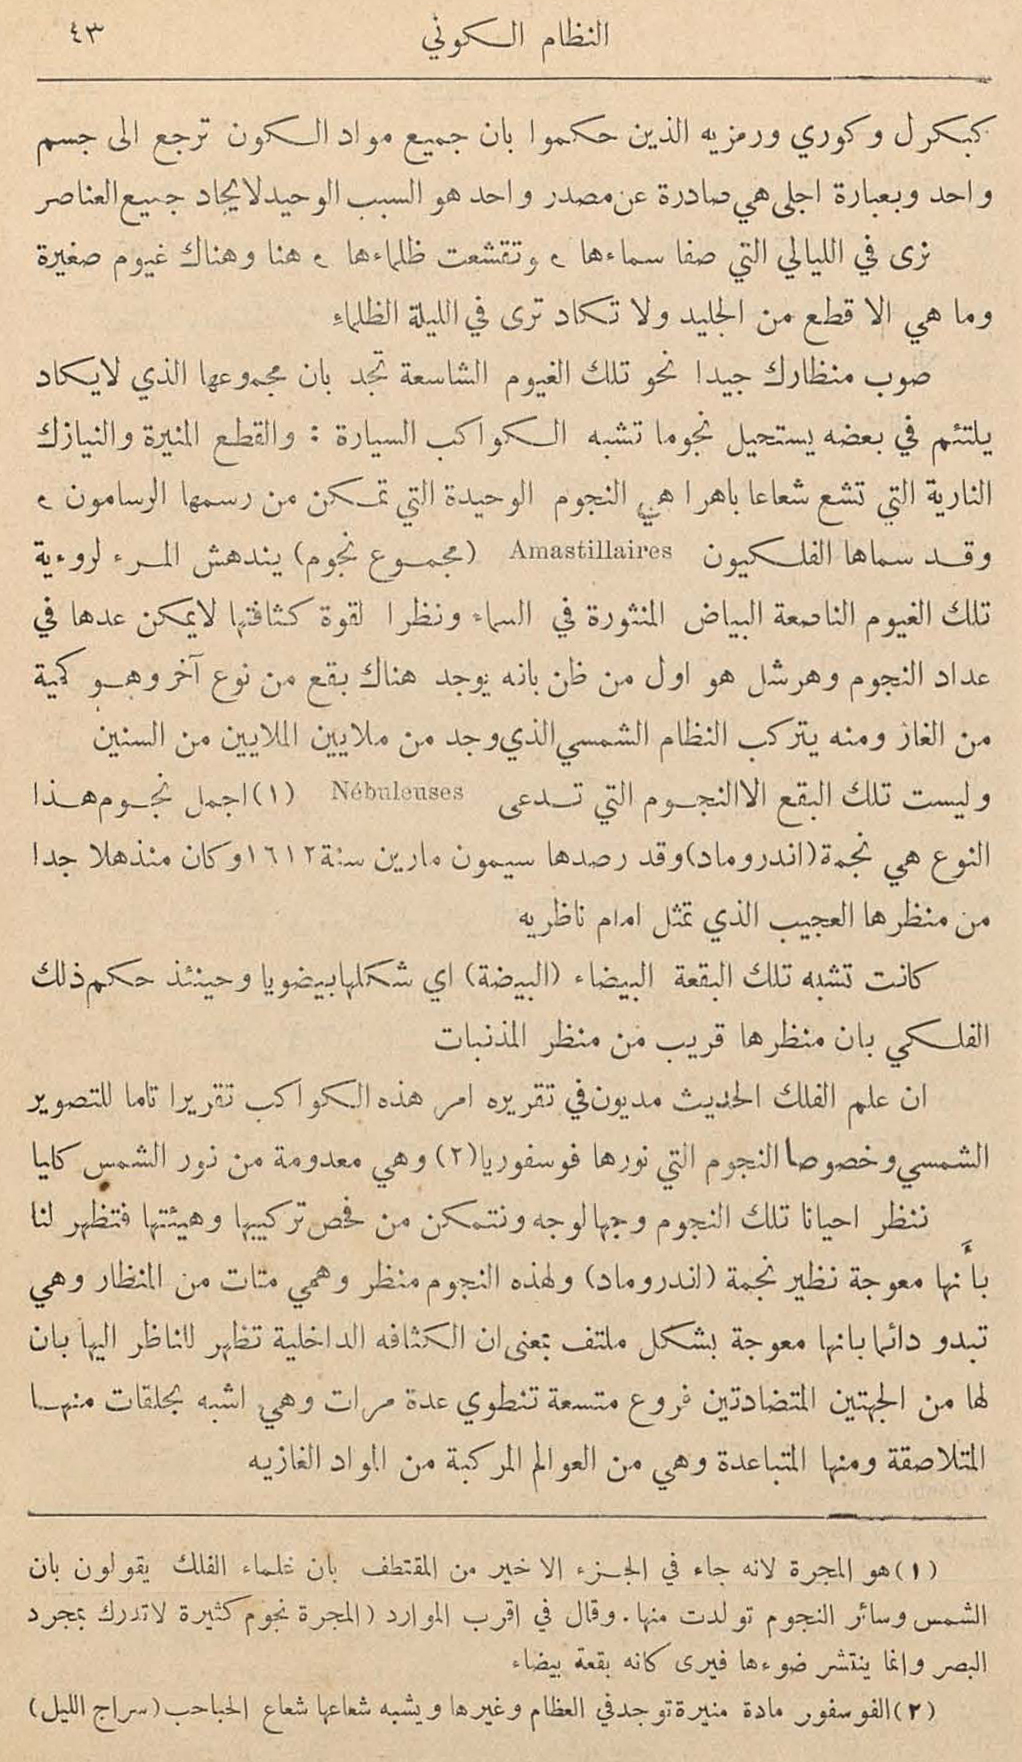 النظام الكوني
٤٣
كبكرل وكوري ورمزيه الذين حكموا بان جميع مواد الكون ترجع الى جسم
واحد وبعبارة اجلى هي صادرة عن مصدر واحد هو السبب الوحيد لايجاد جميع العناصر
نرى في الليالي التي صفا سماءها ، وتقشعت ظلماءها ، هنا وهناك غيوم صغيرة
وما هي الا قطع من الجليد ولا تكاد ترى في الليلة الظلماء
صوب منظارك جيدا نحو تلك الغيوم الشاسعة تجد بان مجموعها الذي لايكاد
يلتئم في بعضه يستحيل نجوما تشبه الكواكب السيارة : والقطع المنيرة والنيازك
النارية التي تشع شعاعا باهرا هي النجوم الوحيدة التي تمكن من رسمها الرسامون ،
وقد سماها الفلكيون Amastillaires (مجموع نجوم) يندهش المرء لروءية
تلك الغيوم الناصعة البياض المنثورة في السماء ونظرا لقوة كثافتها لايمكن عدها في
عداد النجوم وهرشل هو اول من ظن بانه يوجد هناك بقع من نوع آخر وهو كمية
من الغاز ومنه يتركب النظام الشمسي الذي وجد من ملايين الملايين من السنين
وليست تلك البقع الا النجوم التي تدعى Nébuleuses (١) اجمل نجوم هذا
النوع هي نجمة (اندروماد) وقد رصدها سيمون مارين سنة ١٦١٢ وكان منذهلا جدا
من منظرها العجيب الذي تمثل امام ناظريه
كانت تشبه تلك البقعة البيضاء (البيضة) اي شكلها بيضويا وحينئذ حكم ذلك
الفلكي بان منظرها قريب من منظر المذنبات
ان علم الفلك الحديث مديون في تقريره امر هذه الكواكب تقريرا تاما للتصوير
الشمسي وخصوصا النجوم التي نورها فوسفوريا (٢) وهي معدومة من نور الشمس كليا
ننظر احيانا تلك النجوم وجها لوجه ونتمكن من فحص تركيبها وهيئتها فتظهر لنا
بأنها معوجة نظير نجمة (اندروماد) ولهذه النجوم منظر وهمي متات من المنظار وهي
تبدو دائما بانها معوجة بشكل ملتف بمعنى ان الكثافه الداخلية تظهر للناظر اليها بان
لها من الجهتين المتضادتين فروع متسعة تنطوي عدة مرات وهي اشبه بحلقات منها
المتلاصقة ومنها المتباعدة وهي من العوالم المركبة من المواد الغازيه
(١) هو المجرة لانه جاء في الجزء الاخير من المقتطف بان علماء الفلك يقولون بان
الشمس وسائر النجوم تولدت منها . وقال في اقرب الموارد (المجرة نجوم كثيرة لاتدرك بمجرد
البصر وانما ينتشر ضوءها فيرى كانه بقعة بيضاء
(٢) الفوسفور مادة منيرة توجد في العظام وغيرها ويشبه شعاعها شعاع الحباحب (سراج الليل)